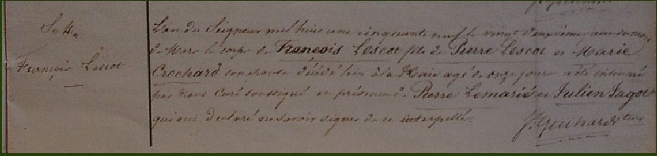 Sép.
François Lescot
L'an du Seigneur mil huit cent cinquante neuf le vingt deuxième jour du mois
de Mars le corps de François Lescot fils de Pierre Lescot et Marie
Crochard son épouse décédé hier à la Haie agé de onze jours a été inhumé
par nous Curé soussigné en présence de Pierre Lemarié et Julien Sagot
qui ont déclaré ne savoir signer de ce interpellés.